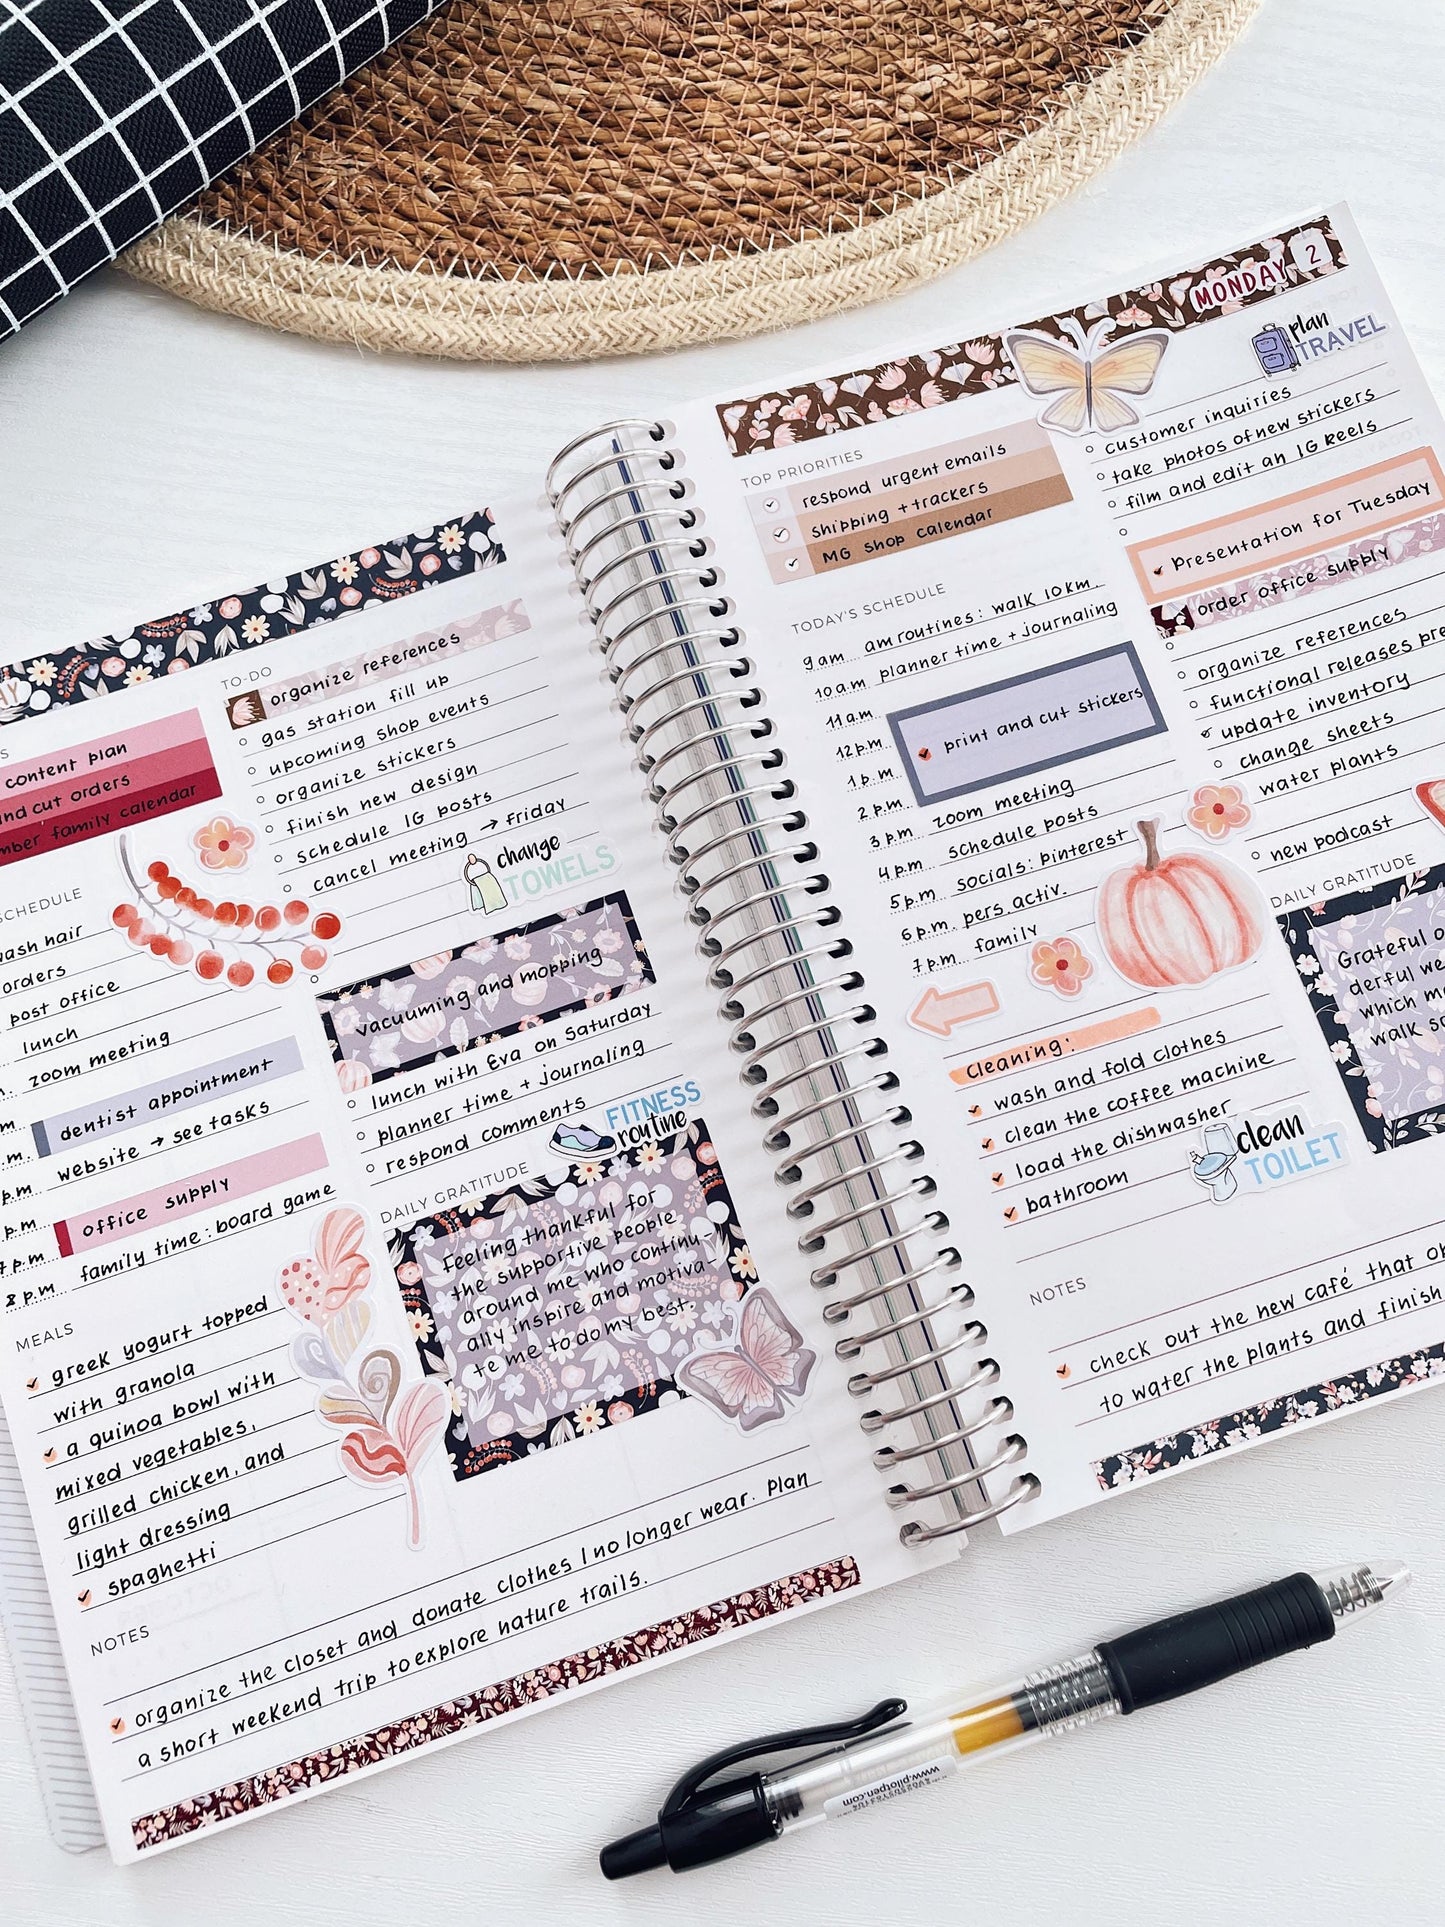 AY
content plan
nd cut orders
mber family calendar
SCHEDULE
ash hair
orders
post office
lunch
zoom meeting
dentist appointment
website → see tasks
p.m
office supply
p.m
7 p.m family time: board game
8 p.m.
MEALS
greek yogurt topped
with granola
a quinoa bowl with
mixed vegetables,
grilled chicken, and
light dressing
spaghetti
NOTES
organize the closet and donate clothes I no longer wear. Plan
a short weekend trip to explore nature trails.
TO-DO
organize references
gas station fill up
upcoming shop events
organize stickers
finish new design
schedule IG posts
cancel meeting → friday
change
TOWELS
vacuuming and mopping
lunch with Eva on Saturday
planner time + journaling
respond comments
FITNESS
routine
DAILY GRATITUDE
Feeling thankful for
the supportive people
around me who continu-
ally inspire and motiva-
te me to do my best.
MONDAY 2
TOP PRIORITIES
respond urgent emails
shipping + trackers
MG shop calendar
TODAY'S SCHEDULE
9 am am routines: walk 10km.
10 a.m planner time + journaling
11 a.m
12 p.m print and cut stickers
1 p.m
2 p.m
3 p.m zoom meeting
4 p.m schedule posts
5 p.m socials: pinterest
6 p.m. pers. activ.
7 p.m family
Cleaning:
wash and fold clothes
clean the coffee machine
load the dishwasher
bathroom
clean
TOILET
NOTES
check out the new café that
to water the plants and finish
plan
TRAVEL
customer inquiries
take photos of new stickers
film and edit an IG Reels
Presentation for Tuesday
order office supply
organize references
functional releases pre
update inventory
change sheets
water plants
new podcast
DAILY GRATITUDE
Grateful
derful we
which m
walk
www.pilotpen.com